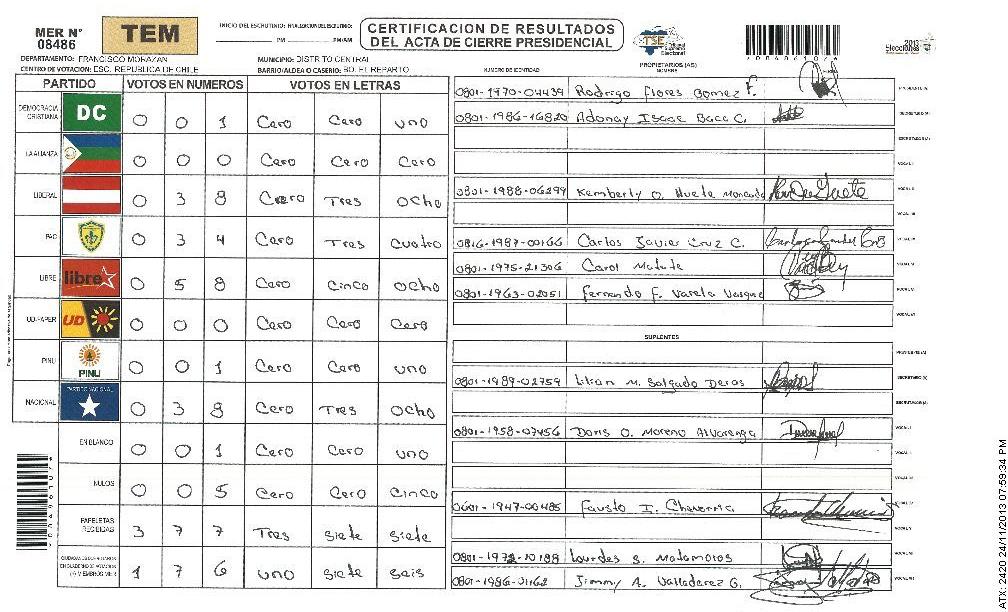 MER N° 08486
TEM
INICIO DEL ESCRUTINIO: FINALIZACION DEL ESCRUTINIO:
PM PM/AM
CERTIFICACION DE RESULTADOS
DEL ACTA DE CIERRE PRESIDENCIAL
TSE
2013
Elecciones
DEPARTAMENTO: FRANCISCO MORAZAN MUNICIPIO: DISTRITO CENTRAL
CENTRO DE VOTACION: ESC. REPUBLICA DE CHILE BARRIO/ALDEA O CASERIO: BO. EL REPARTO
NUMERO DE IDENTIDAD PROPIETARIOS (AS) NOMBRE
PARTIDO VOTOS EN NUMEROS VOTOS EN LETRAS
DEMOCRACIA CRISTIANA DC 0 0 1 Cero Cero uno
LA ALIANZA 0 0 0 Cero Cero Cero
LIBERAL 0 3 8 Cero Tres Ocho
PAC 0 3 4 Cero Tres Cuatro
LIBRE libre 0 5 8 Cero Cinco Ocho
UD-FAPER UD 0 0 0 Cero Cero Cero
PINU PINU 0 0 1 Cero Cero uno
NACIONAL PARTIDO NACIONAL 0 3 8 Cero Tres Ocho
EN BLANCO 0 0 1 Cero Cero uno
NULOS 0 0 5 Cero Cero Cinco
PAPELETAS RECIBIDAS 3 7 7 Tres siete siete
1 7 6 uno siete seis
0801-1970-04439 Rodrigo Flores Gomez F.
0801-1986-16820 Adonay Isaac Baca C.
0801-1988-06299 Kemberly O. Hueta Moncada
0816-1987-00166 Carlos Javier Cruz C.
0801-1975-21306 Carol Matute
0801-1963-02051 Fernando F. Varela Vasque
SUPLENTES
0801-1989-02759 Lilian M. Salgado Deras
0801-1958-07456 Doris O. Moreno Alvarenga
0601-1947-00485 Fausto I. Cheverria
0801-1972-10188 Lourdes S. Matamoros
0801-1986-01162 Jimmy A. Valladerez G.
ATX: 2420 24/11/2013 07:59:34 PM